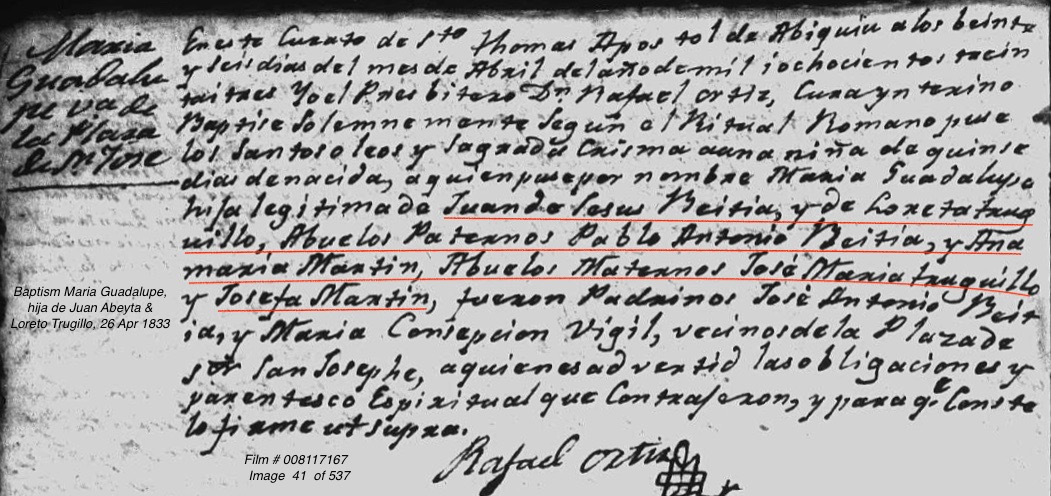 Maria
Guadalu
pe va de
la Plaza
de Sn. Jose
En este Curato de Sto Thomas Apostol de Abiquiu a los beinte
y seis dias del mes de Abril del año de mil i ochocientos trein
tai tres Yo el Presbitero Dn Rafael Ortiz, Cura ynterino
Baptise Solemnemente Según el Ritual Romano puse
los Santos oleos y Sagrada Crisma auna niña de quinse
dias de nacida, a quien puse por nombre Maria Guadalupe
hija legitima de Juan de Jesus Beitia, y de Loreta trug
uillo, Abuelos Paternos Pablo Antonio Beitia, y Ana
maria Martin, Abuelos Maternos José Maria truguillo
y Josefa Martin, fueron Padrinos José Antonio Beit
ia, y Maria Consepcion Vigil, vecinos de la Plaza de
Sor San Josephe, a quienes advertid las obligaciones y
parentesco Espiritual que Contrajeron, y para qe Conste
lo firme ut supra.
Rafael Ortiz
Baptism Maria Guadalupe,
hija de Juan Abeyta &
Loreto Trugillo, 26 Apr 1833
Film # 008117167
Image 41 of 537